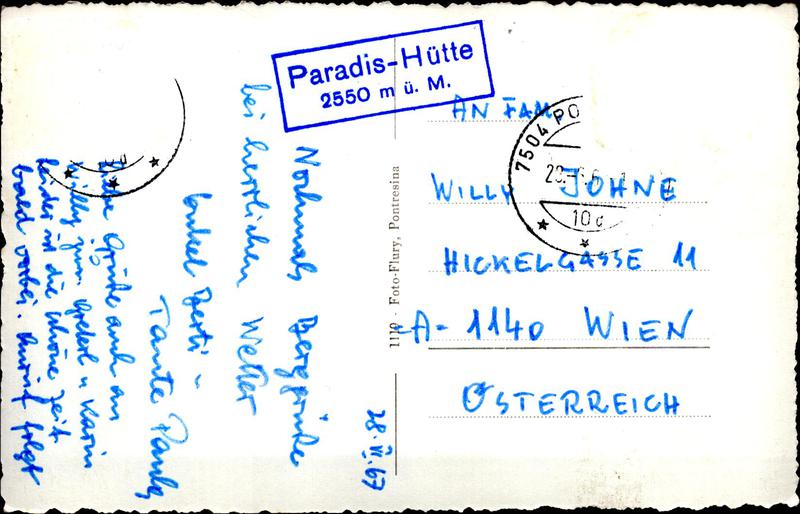 Paradis-Hütte
2550 m ü. M.
Nochmals Berggrüße
bei herrlichem Wetter
Onkel Berti u
Tante Paula
Liebe Grüße auch an
Willy jun. Gretel u Karin
leider ist die schöne Zeit
bald vorbei. folgt
28.VI.67
1110 - Foto-Flury, Pontresina
AN FAM.
WILLY JOHNE
HICKELGASSE 11
A-1140 WIEN
ÖSTERREICH
7504 PO